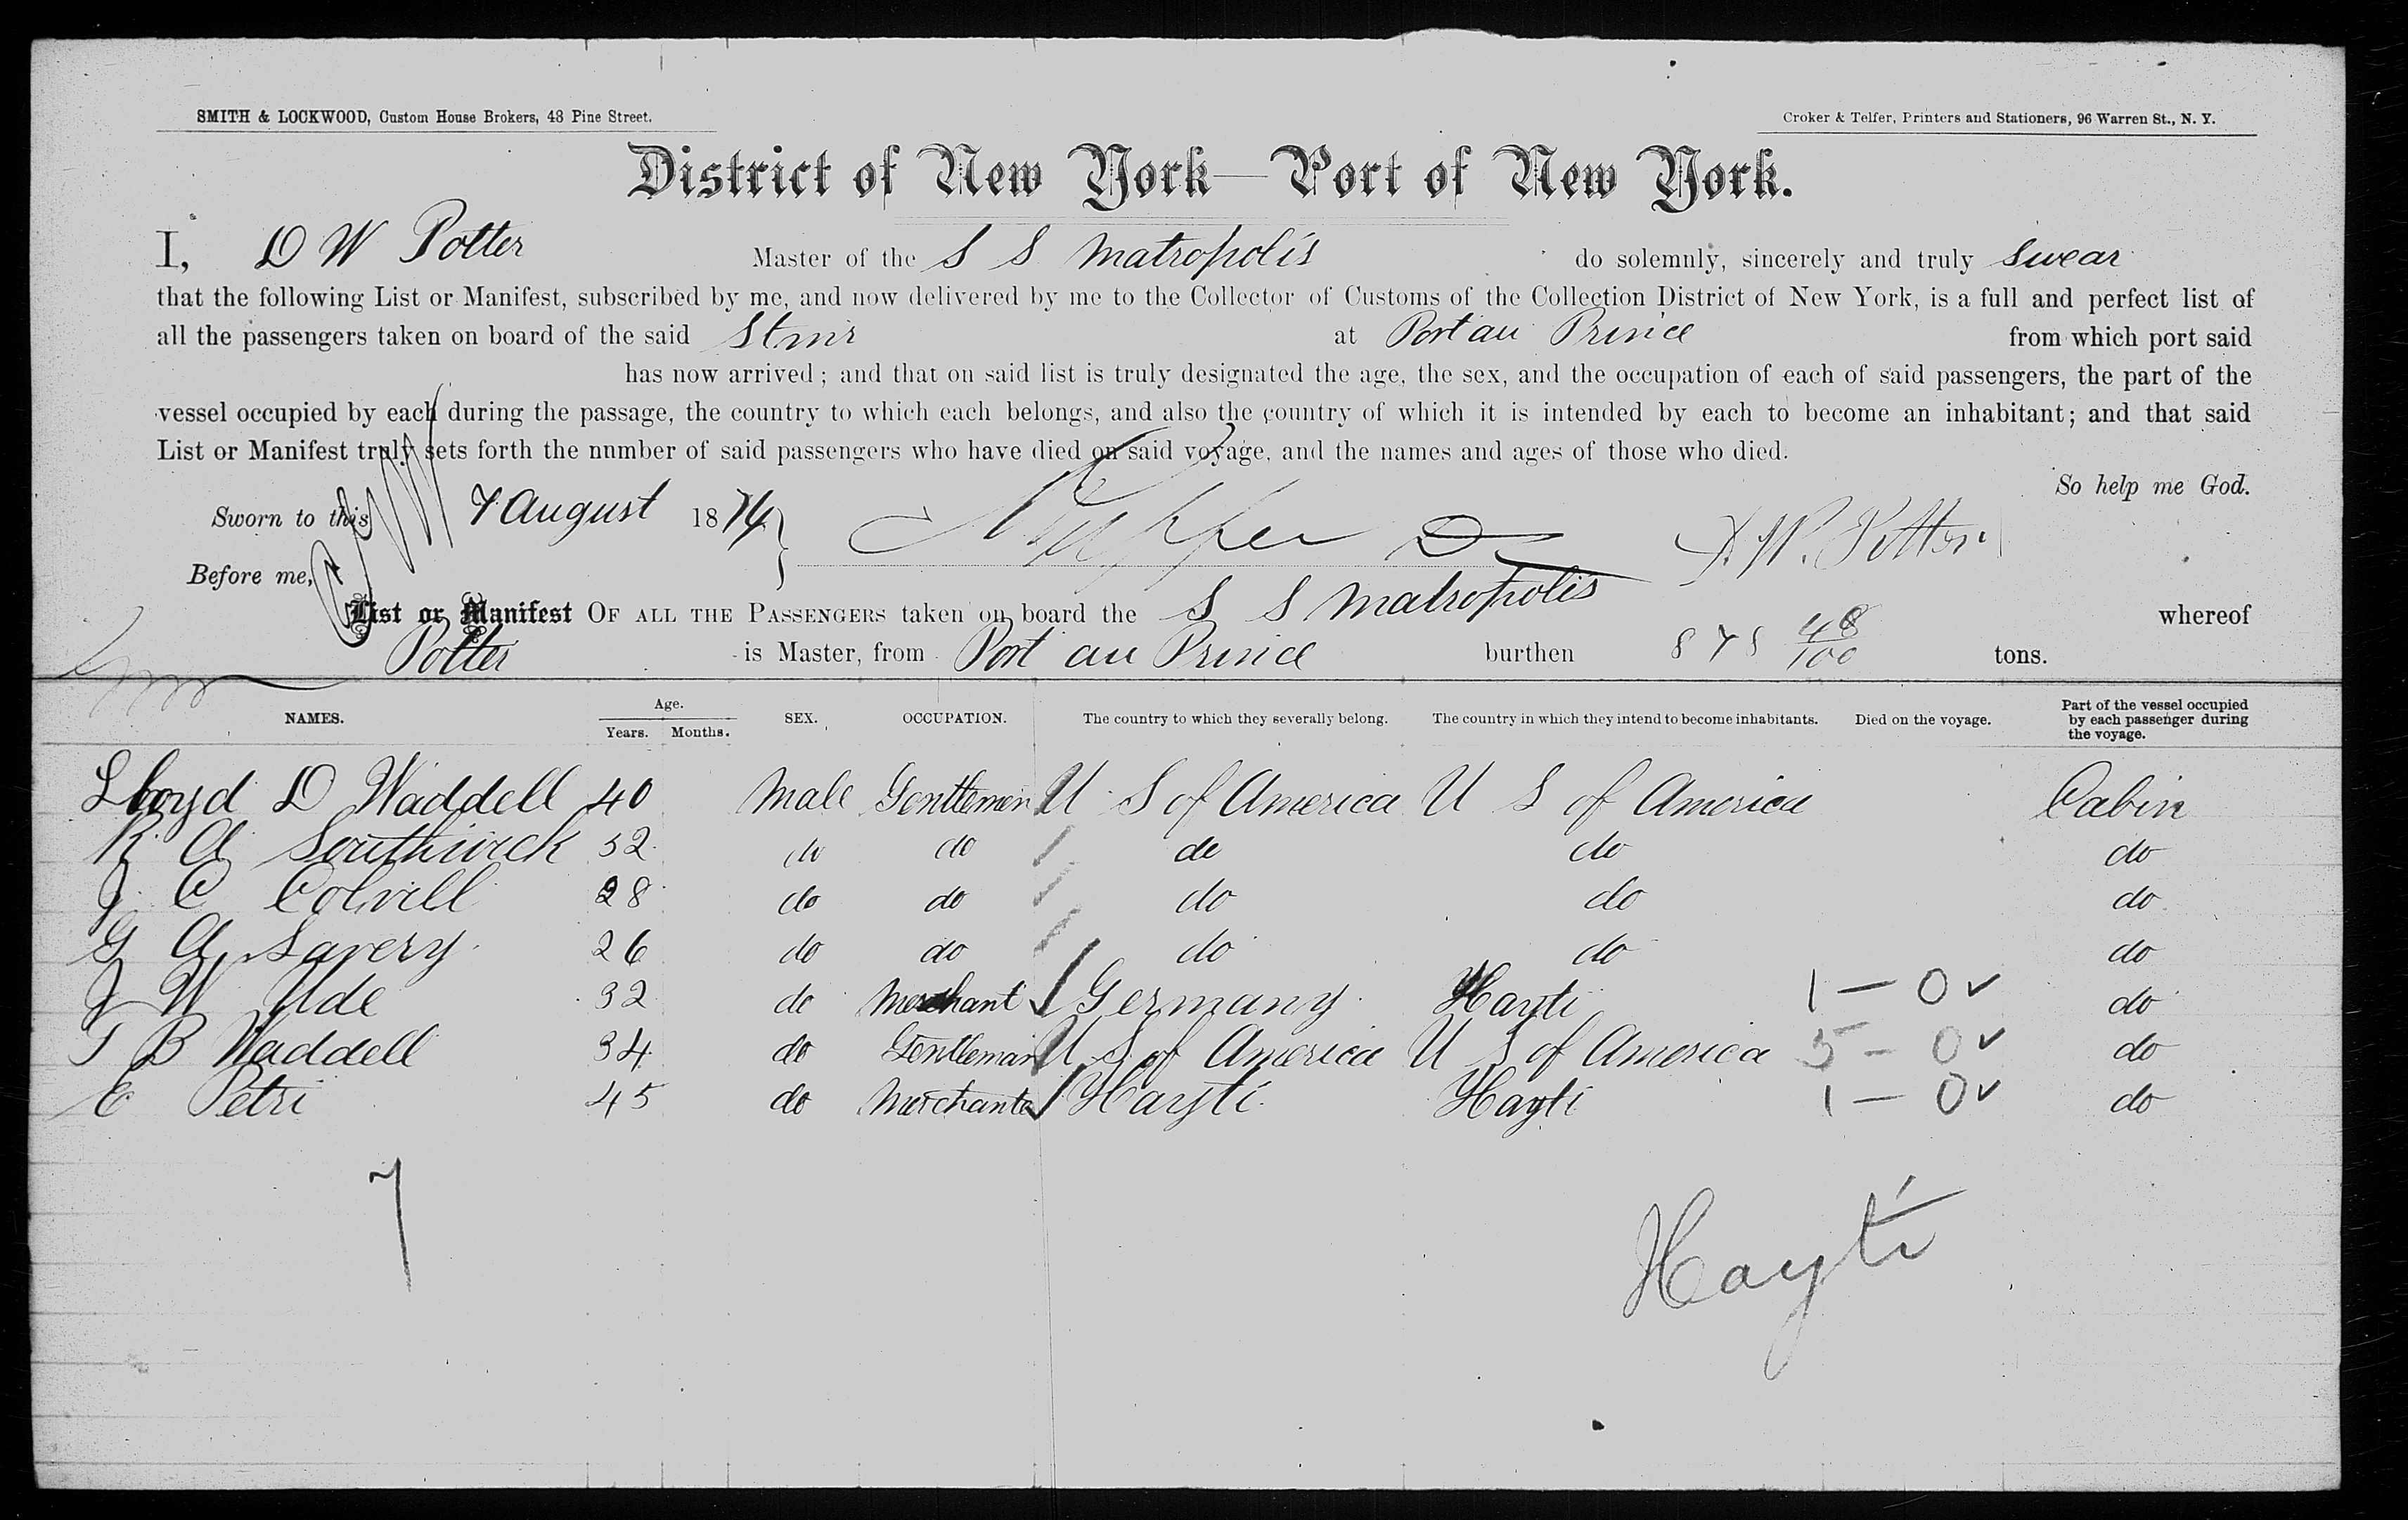 SMITH & LOCKWOOD, Custom House Brokers, 43 Pine Street.
Croker & Telfer, Printers and Stationers, 96 Warren St., N. Y.
District of New York—Port of New York.
I, D W Potter Master of the S S Matropolis do solemnly, sincerely and truly swear
that the following List or Manifest, subscribed by me, and now delivered by me to the Collector of Customs of the Collection District of New York, is a full and perfect list of
all the passengers taken on board of the said Stmr at Port au Prince from which port said
has now arrived; and that on said list is truly designated the age, the sex, and the occupation of each of said passengers, the part of the
vessel occupied by each during the passage, the country to which each belongs, and also the country of which it is intended by each to become an inhabitant; and that said
List or Manifest truly sets forth the number of said passengers who have died on said voyage, and the names and ages of those who died.
So help me God.
Sworn to this 7 August 1874
D. W. Potter
Before me,
List or Manifest OF ALL THE PASSENGERS taken on board the S S Matropolis whereof
Potter is Master, from Port au Prince burthen 878 48/100 tons.
NAMES. Age. Years. Months. SEX. OCCUPATION. The country to which they severally belong. The country in which they intend to become inhabitants. Died on the voyage. Part of the vessel occupied by each passenger during the voyage.
Lloyd D Waddell 40 Male Gentlemen U S of America U S of America Cabin
R A Southwick 32 do do do do do
J C Colvill 28 do do do do do
G A Savery 26 do do do do do
J W Ude 32 do Merchant Germany Hayti 1 — 0 ✓ do
T B Waddell 34 do Gentleman U S of America U S of America 5 — 0 ✓ do
E Petri 45 do Merchante Hayti Hayti 1 — 0 ✓ do
7
Hayti